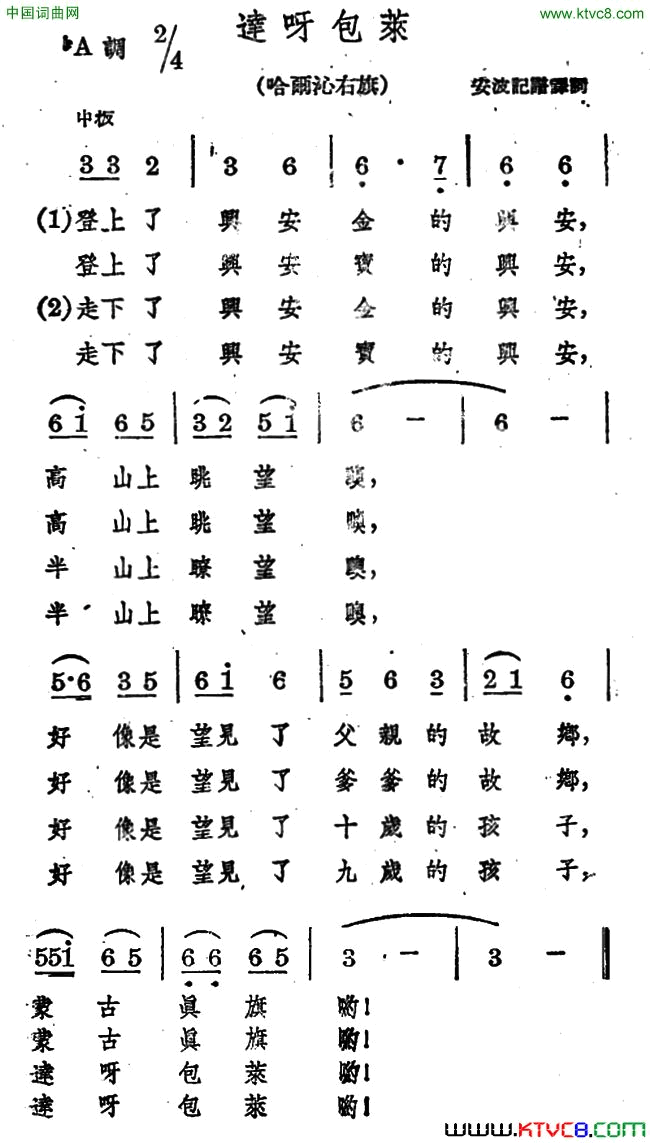 中国词曲网
http://www.ktvc8.com/
達呀包萊
♭A調 2/4
(哈爾沁右旗) 安波記譜譯詞
中板
3 3 2 | 3 6 | 6 · 7 | 6 6 |
(1)登上了 興安 金的 興安,
登上了 興安 寶的 興安,
(2)走下了 興安 金的 興安,
走下了 興安 寶的 興安,
6 i 6 5 | 3 2 5 i | 6 - | 6 - |
高 山上 眺 望 噢,
高 山上 眺 望 噢,
半 山上 瞭 望 噢,
半 山上 瞭 望 噢,
5·6 3 5 | 6 i 6 | 5 6 3 | 2 1 6 |
好 像是 望見 了 父親的 故 鄉,
好 像是 望見 了 爹爹的 故 鄉,
好 像是 望見 了 十歲的 孩 子,
好 像是 望見 了 九歲的 孩 子,
5 5 i 6 5 | 6 6 6 5 | 3 - | 3 - ‖
蒙 古 眞 旗 喲!
蒙 古 眞 旗 喲!
達 呀 包 萊 喲!
達 呀 包 萊 喲!
www.KTVC8.com